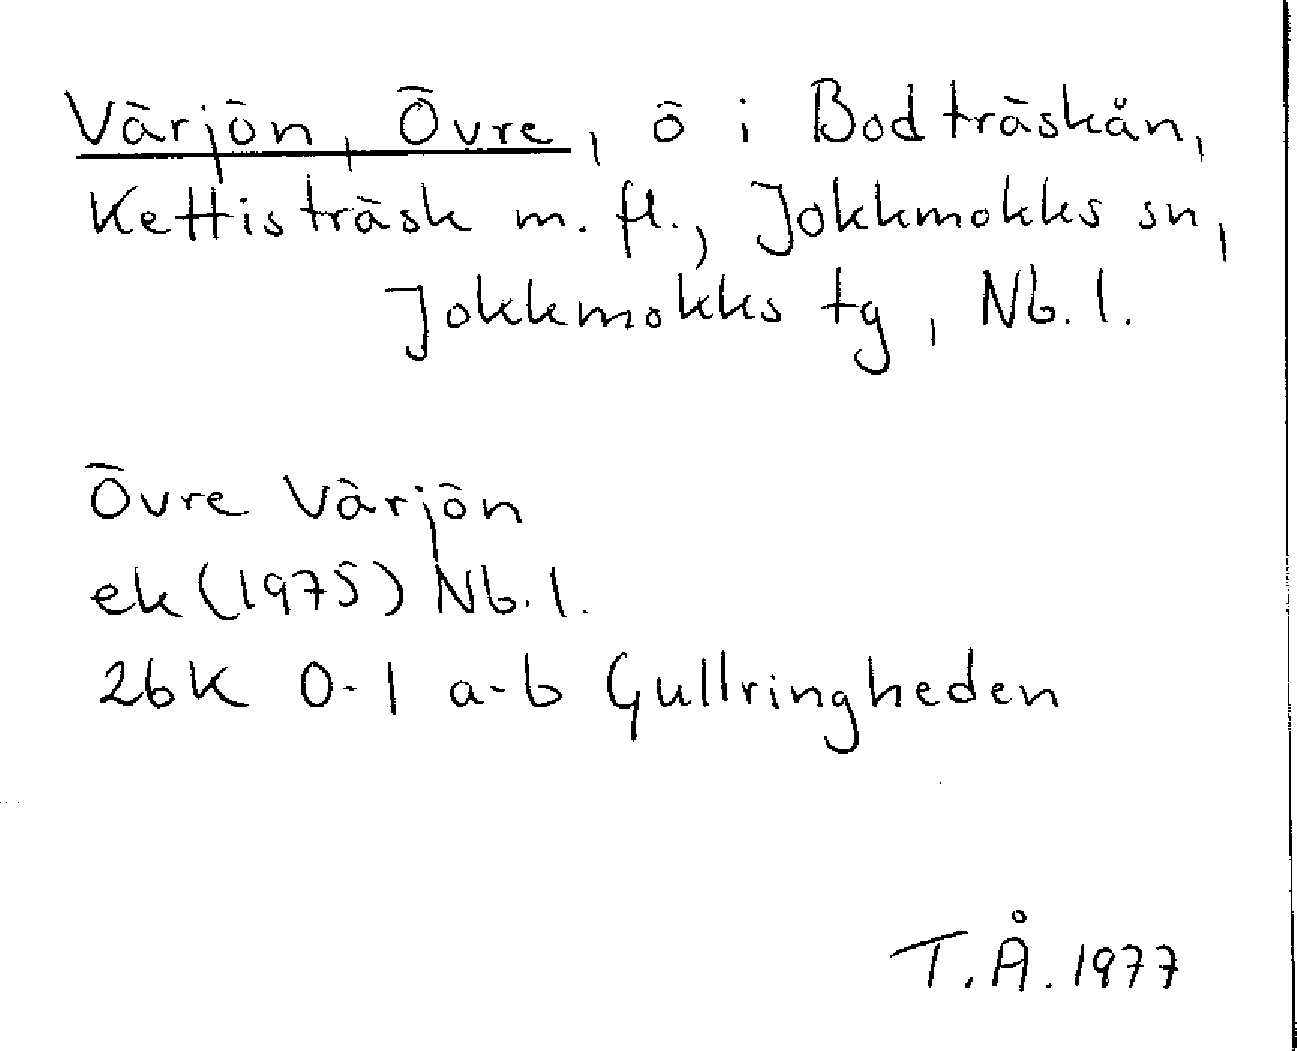 Värjön, Övre, ö i Bodträskån,
Kettisträsk m. fl., Jokkmokks sn,
Jokkmokks tg, Nb. l.
Övre Värjön
ek (1975) Nb. l.
26K 0-1 a-b Gullringheden
T. Å. 1977